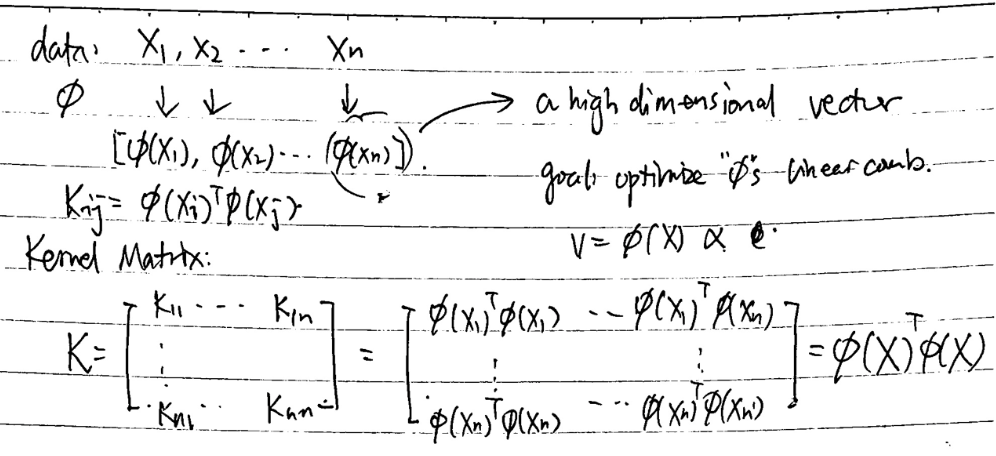 data: X₁, X₂ · · · Xn
φ ↓ ↓ ↓ → a high dimensional vector
[φ(X₁), φ(X₂) · · · (φ(Xn)]).
goal: optimize "φ"s linear comb.
Kij = φ(Xi)ᵀφ(Xj)
V = φ(X) α
Kernel Matrix:
K = [ K₁₁ · · · K₁n ] = [ φ(X₁)ᵀφ(X₁) · · · φ(X₁)ᵀφ(Xn) ] = φ(X)ᵀφ(X)
⋮ ⋮ ⋮
Kn₁ · · Knn φ(Xn)ᵀφ(Xn) · · · φ(Xn)ᵀφ(Xn)